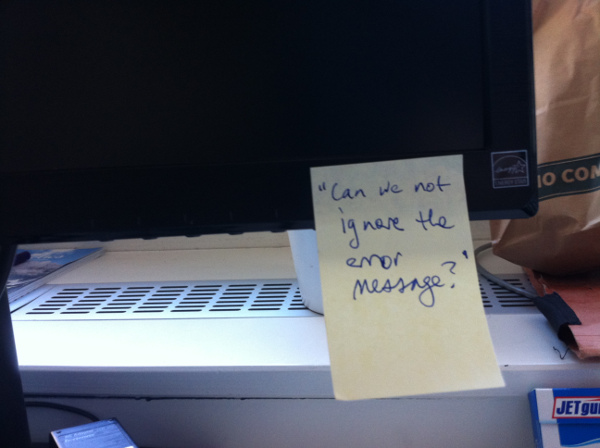 "Can we not
ignore the
error
message?"
IO CON
JETgui